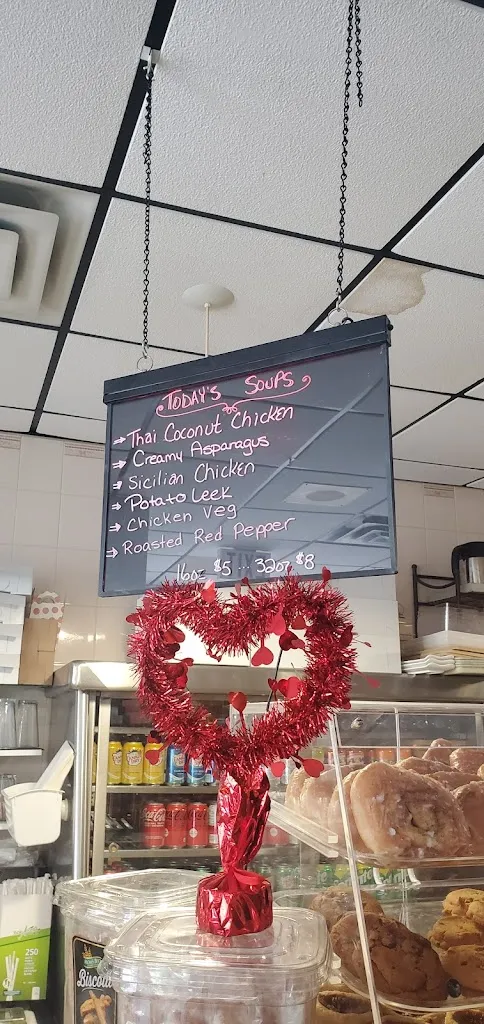 TODAY'S SOUPS
→ Thai Coconut Chicken
→ Creamy Asparagus
→ Sicilian Chicken
→ Potato Leek
→ Chicken Veg
→ Roasted Red Pepper
16oz $5 ... 32oz $8
Biscoti
250